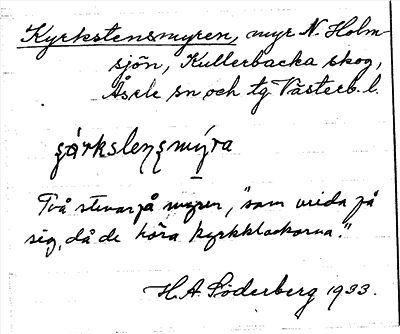 Kyrkstensmyren, myr N. Holm-
sjön, Kullerbacka skog,
Åsele sn och tg Västerb. l.
Två stenar på myren, "som vrida på
sig, då de höra kyrkklockorna."
H. A. Söderberg 1933.